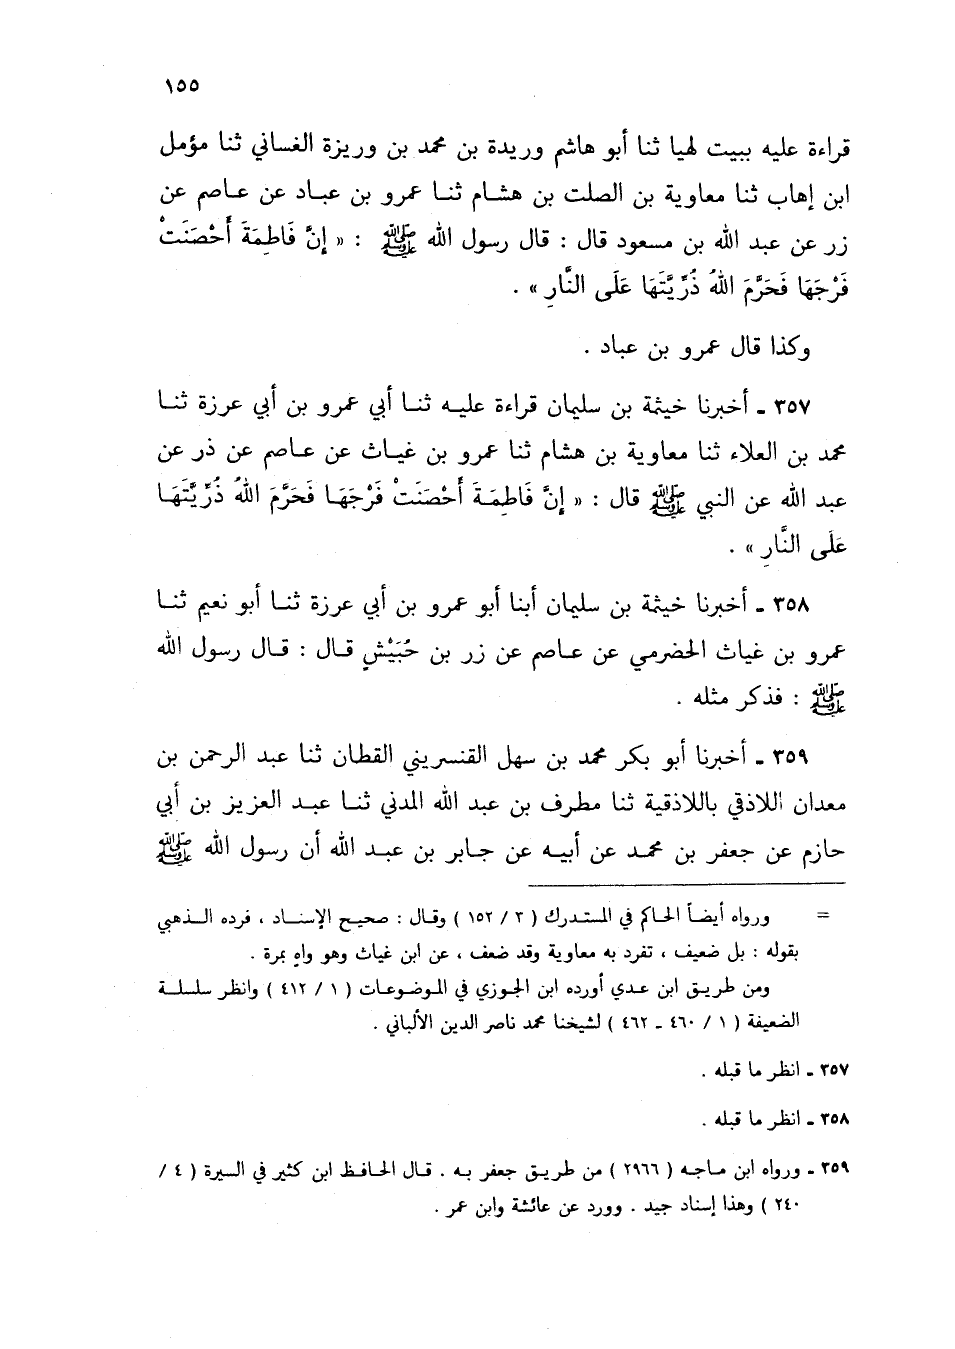 ١٥٥
قراءة عليه ببيت لهيا ثنا أبو هاشم وريدة بن محمد بن وريزة الغساني ثنا مؤمل
ابن إهاب ثنا معاوية بن الصلت بن هشام ثنا عمرو بن عباد عن عاصم عن
زر عن عبد الله بن مسعود قال : قال رسول الله ﷺ : « إِنَّ فَاطِمَةَ أَحْصَنَتْ
فَرْجَهَا فَحَرَّمَ اللهُ ذُرِّيَّتَهَا عَلَى النَّارِ » .
وكذا قال عمرو بن عباد .
٣٥٧ ـ أخبرنا خيثمة بن سليمان قراءة عليه ثنا أبي عمرو بن أبي عرزة ثنا
محمد بن العلاء ثنا معاوية بن هشام ثنا عمرو بن غياث عن عاصم عن ذر عن
عبد الله عن النبي ﷺ قال : « إِنَّ فَاطِمَةَ أَحْصَنَتْ فَرْجَهَا فَحَرَّمَ اللهُ ذُرِّيَّتَهَا
عَلَى النَّارِ » .
٣٥٨ ـ أخبرنا خيثمة بن سليمان أبنا أبو عمرو بن أبي عرزة ثنا أبو نعيم ثنا
عمرو بن غياث الحضرمي عن عاصم عن زر بن حُبَيْشٍ قال : قال رسول الله
ﷺ : فذكر مثله .
٣٥٩ ـ أخبرنا أبو بكر محمد بن سهل القنسريني القطان ثنا عبد الرحمن بن
معدان اللاذقي باللاذقية ثنا مطرف بن عبد الله المدني ثنا عبد العزيز بن أبي
حازم عن جعفر بن محمد عن أبيه عن جابر بن عبد الله أن رسول الله ﷺ
= ورواه أيضاً الحاكم في المستدرك ( ٣ / ١٥٢ ) وقال : صحيح الإسناد ، فرده الذهبي
بقوله : بل ضعيف ، تفرد به معاوية وقد ضعف ، عن ابن غياث وهو واهٍ بمرة .
ومن طريق ابن عدي أورده ابن الجوزي في الموضوعات ( ١ / ٤١٢ ) وانظر سلسلة
الضعيفة ( ١ / ٤٦٠ ـ ٤٦٢ ) لشيخنا محمد ناصر الدين الألباني .
٣٥٧ ـ انظر ما قبله .
٣٥٨ ـ انظر ما قبله .
٣٥٩ ـ ورواه ابن ماجه ( ٢٩٦٦ ) من طريق جعفر به . قال الحافظ ابن كثير في السيرة ( ٤ /
٢٤٠ ) وهذا إسناد جيد . وورد عن عائشة وابن عمر .